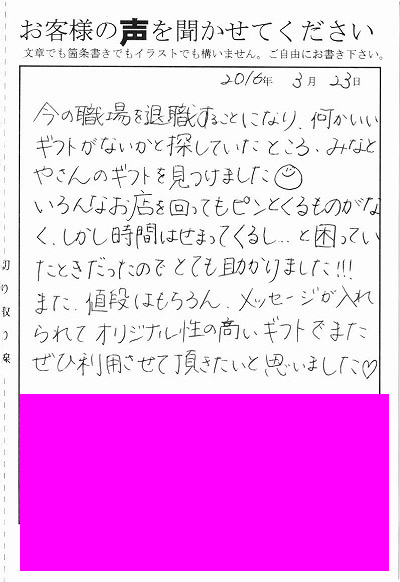 お客様の声を聞かせてください
文章でも箇条書きでもイラストでも構いません。ご自由にお書き下さい。
2016年 3月 23日
今の職場を退職することになり、何かいい
ギフトがないかと探していたところ、みなと
やさんのギフトを見つけました☺
いろんなお店を回ってもピンとくるものがな
く、しかし時間はせまってくるし…と困ってい
たときだったのでとても助かりました!!!
また、値段はもちろん、メッセージが入れ
られてオリジナル性の高いギフトでまた
ぜひ利用させて頂きたいと思いました♡
切り取り線